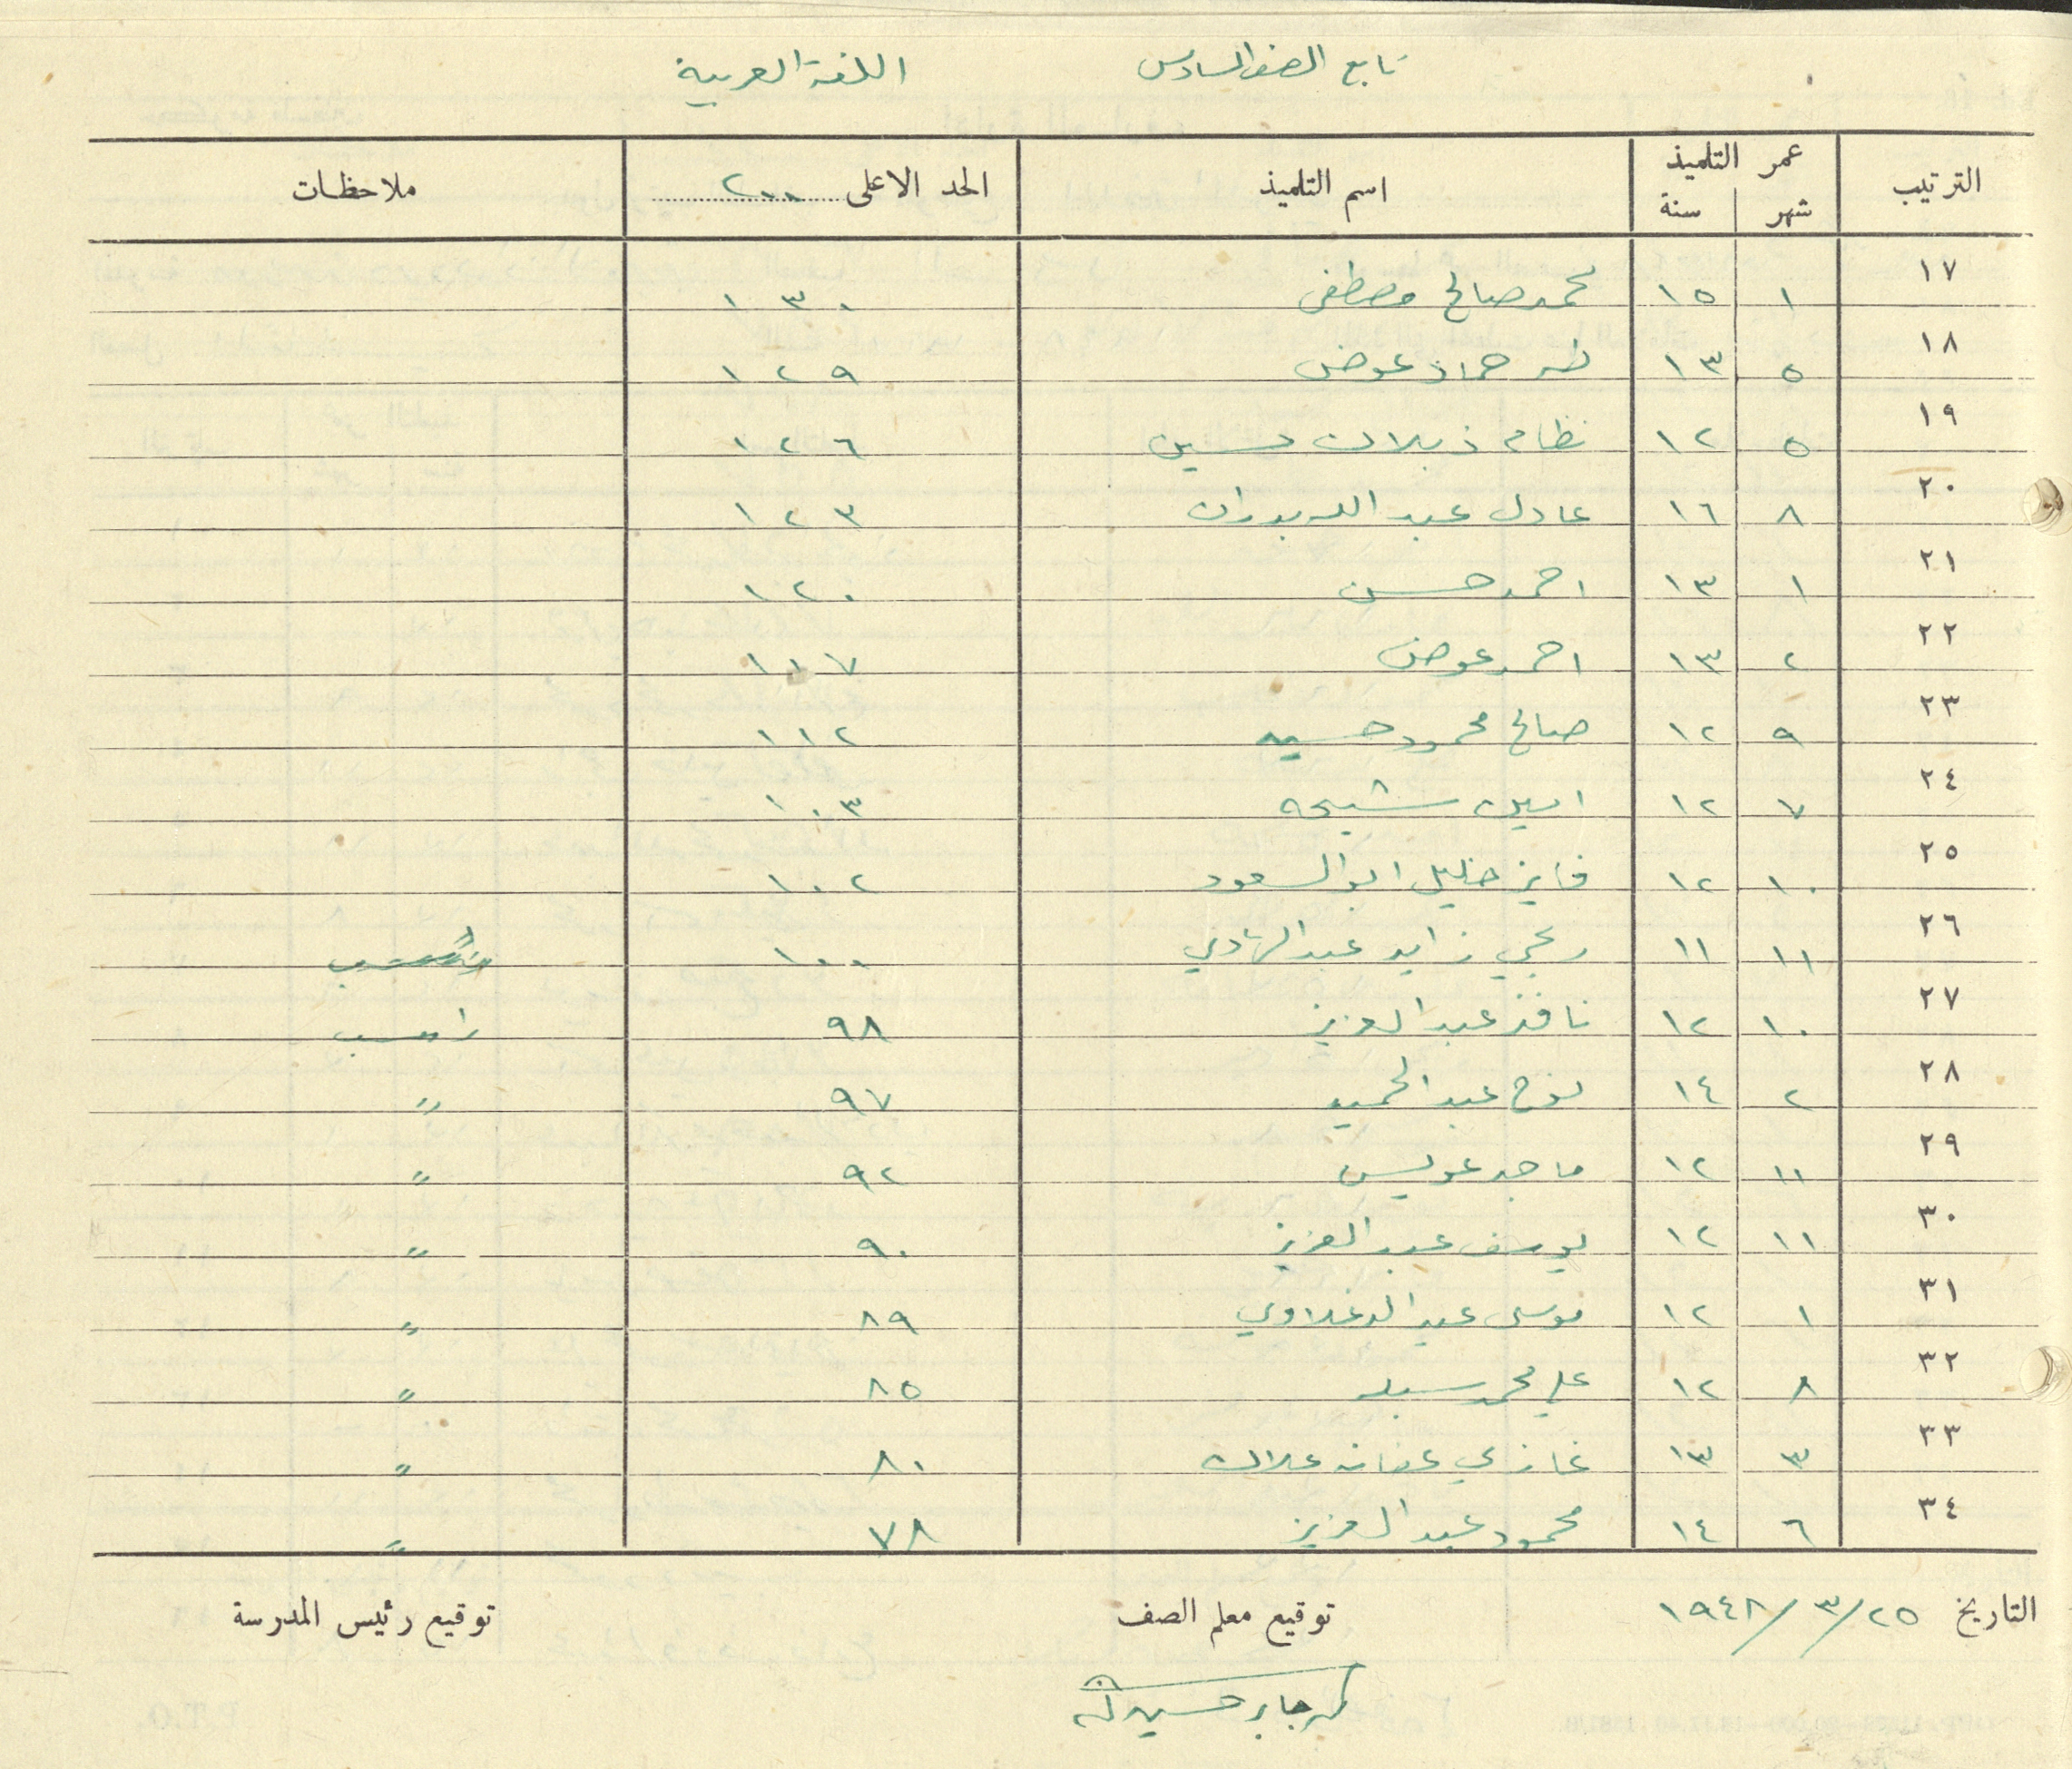 تابع الصف السادس اللغة العربية
الترتيب عمر التلميذ اسم التلميذ الحد الاعلى ٢٠٠ ملاحظات
شهر سنة
١٧ ١ ١٥ محمد صالح مصطفى ١٣٠
١٨ ٥ ١٣ طه حماد عوض ١٢٩
١٩ ٥ ١٢ نظام ذيلان حسين ١٢٦
٢٠ ٨ ١٦ عادل عبد الله بدران ١٢٣
٢١ ١ ١٣ احمد حسن ١٢٠
٢٢ ٢ ١٣ احمد عوض ١١٧
٢٣ ٩ ١٢ صالح محمود حسين ١١٢
٢٤ ٧ ١٢ امين شيحه ١٠٣
٢٥ ١٠ ١٢ فايز خليل ابو السعود ١٠٢
٢٦ ١١ ١١ ربحي زايد عبد الهادي ١٠٠
٢٧ ١٠ ١٢ نافذ عبد العزيز ٩٨ راسب
٢٨ ٢ ١٤ نوح عبد الحميد ٩٧ "
٢٩ ١١ ١٢ ماجد عويس ٩٢ "
٣٠ ١١ ١٢ يوسف عبد العزيز ٩٠ "
٣١ ١ ١٢ موسى عيد الدغلاوي ٨٩ "
٣٢ ٨ ١٢ علي محمد ٨٥ "
٣٣ ٣ ١٣ غازي علان ٨٠ "
٣٤ ٦ ١٤ محمود عبد العزيز ٧٨ "
التاريخ ٢٥/٣/١٩٤٨ توقيع معلم الصف توقيع رئيس المدرسة
جابر حسين